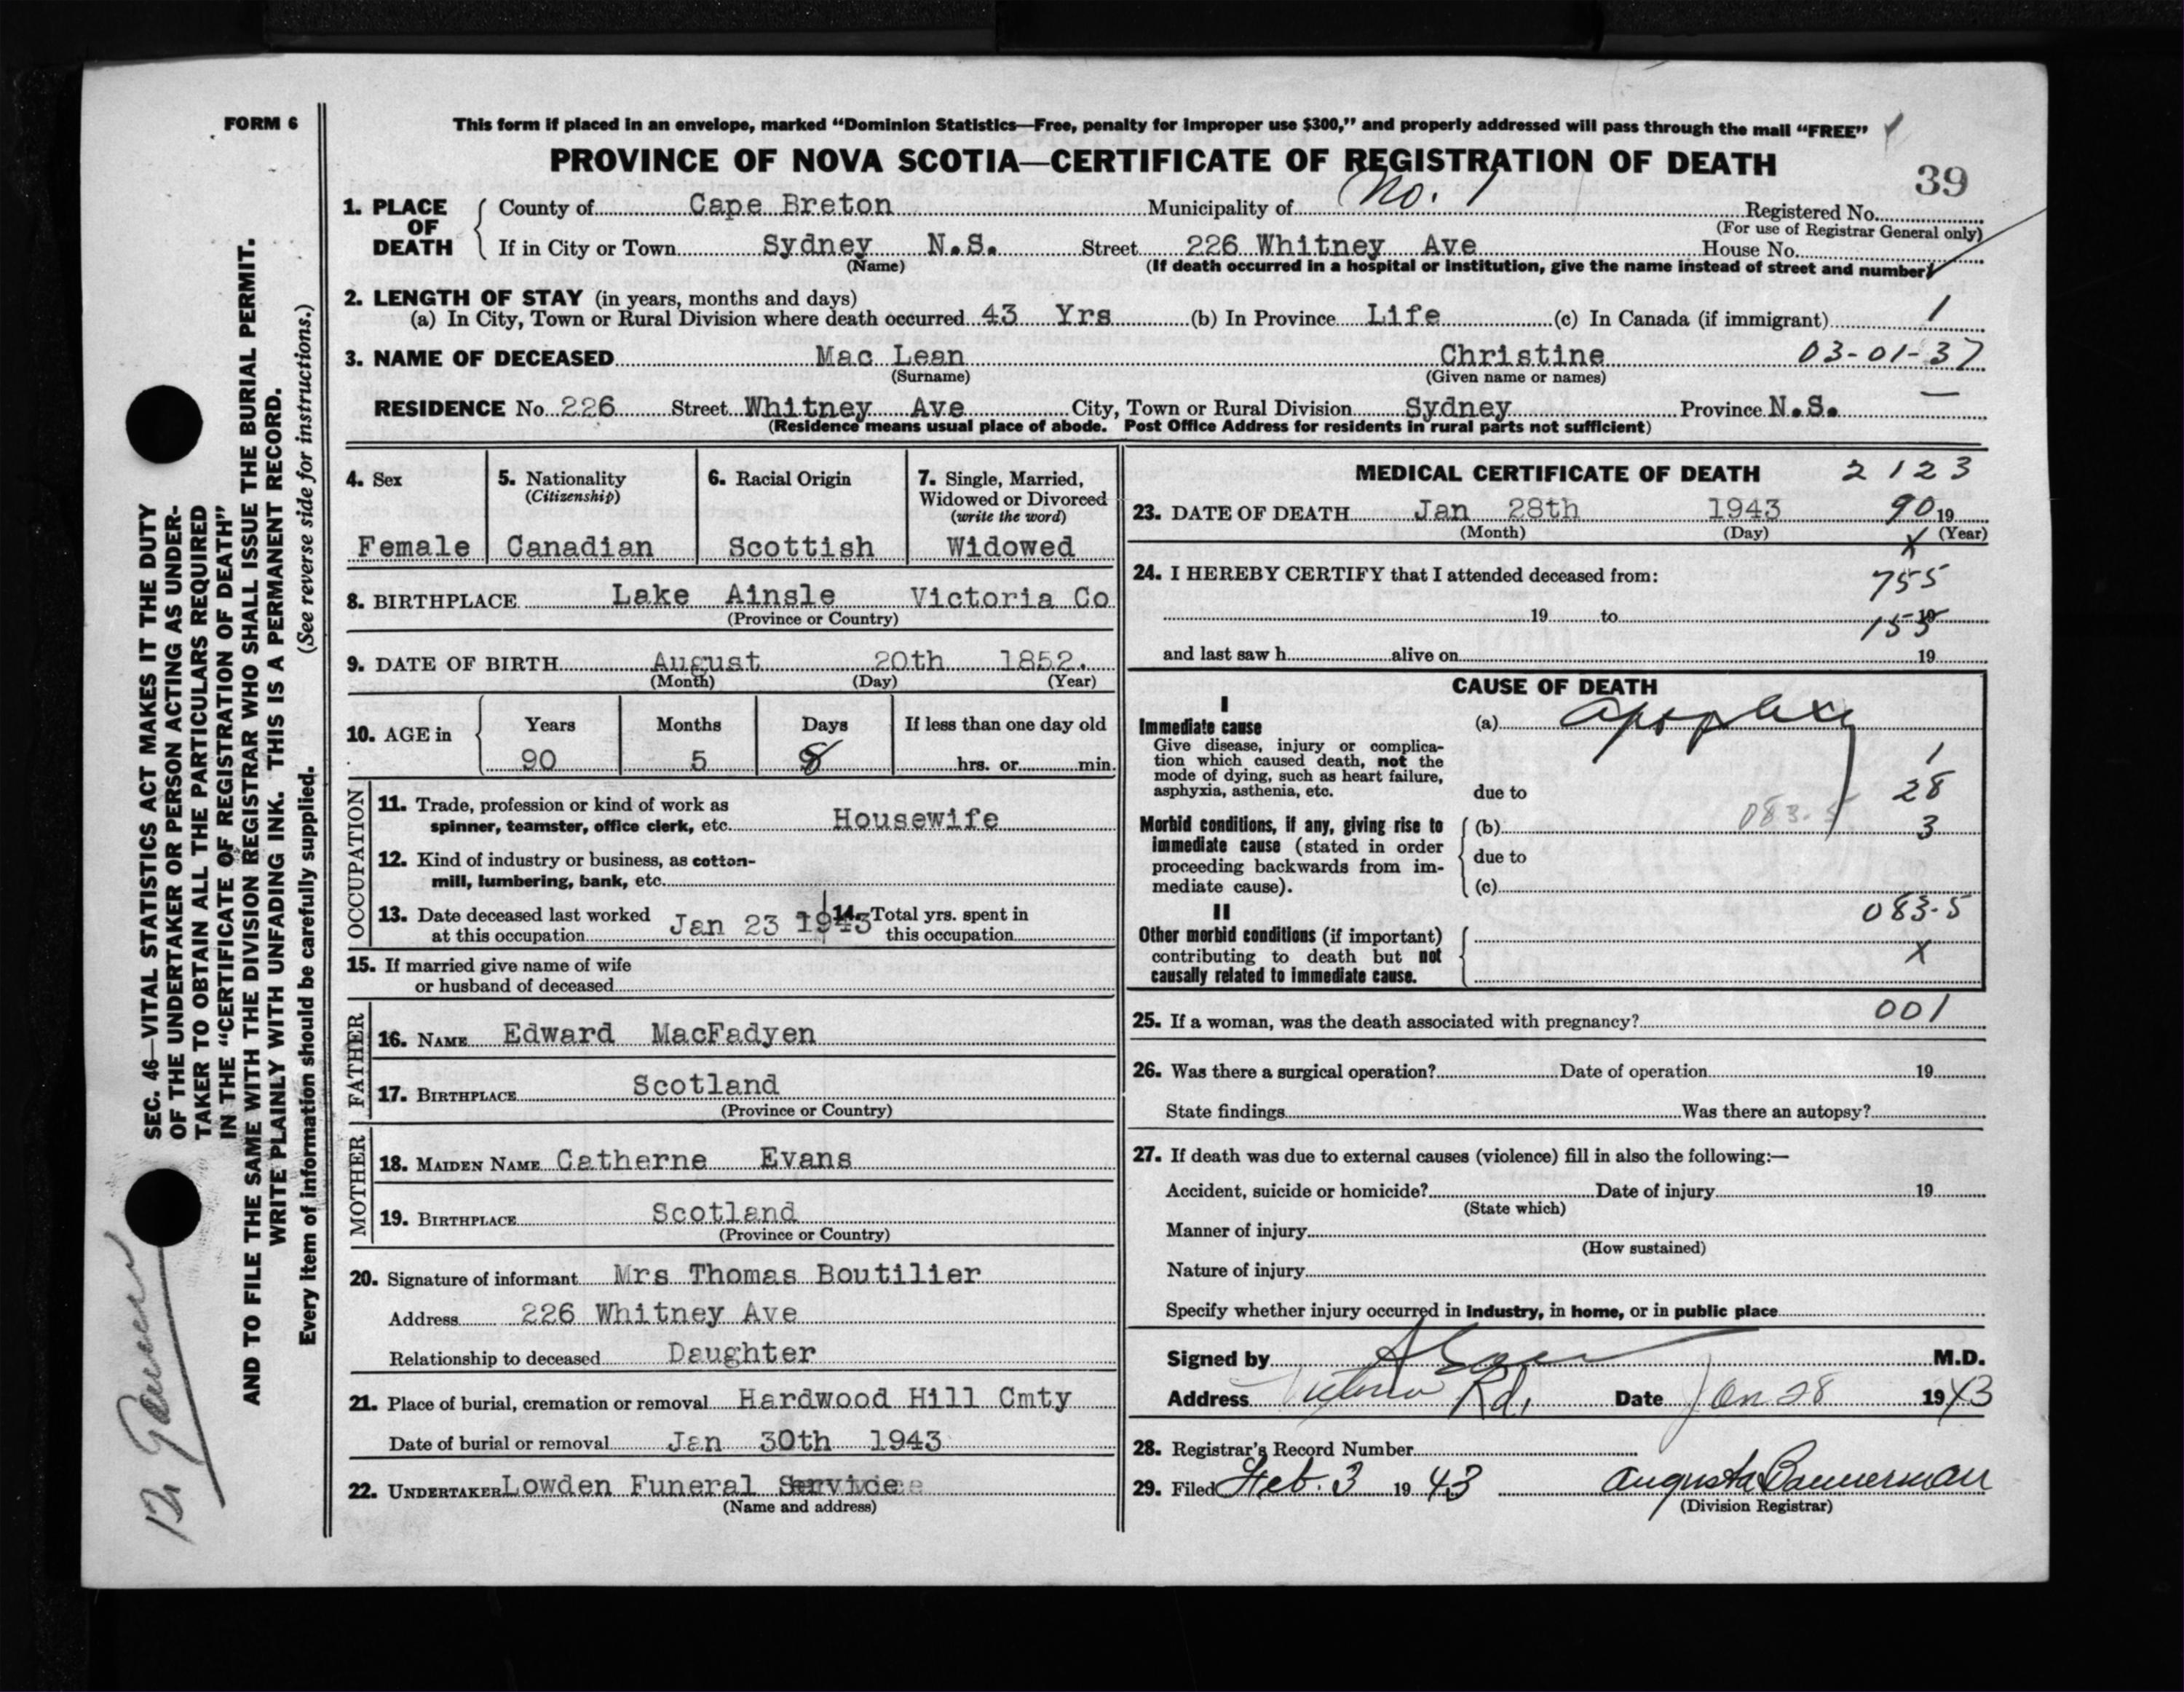 FORM 6
This form if placed in an envelope, marked “Dominion Statistics—Free, penalty for improper use $300,” and properly addressed will pass through the mail “FREE”
PROVINCE OF NOVA SCOTIA—CERTIFICATE OF REGISTRATION OF DEATH
39
1. PLACE OF DEATH
County of Cape Breton Municipality of No. 1 Registered No.
(For use of Registrar General only)
If in City or Town Sydney N.S. Street 226 Whitney Ave House No.
(Name) (If death occurred in a hospital or institution, give the name instead of street and number)
2. LENGTH OF STAY (in years, months and days)
(a) In City, Town or Rural Division where death occurred 43 Yrs (b) In Province Life (c) In Canada (if immigrant) 1
3. NAME OF DECEASED Mac Lean Christine 03-01-37
(Surname) (Given name or names)
RESIDENCE No 226 Street Whitney Ave City, Town or Rural Division Sydney Province N.S. —
(Residence means usual place of abode. Post Office Address for residents in rural parts not sufficient)
4. Sex
Female
5. Nationality
(Citizenship)
Canadian
6. Racial Origin
Scottish
7. Single, Married, Widowed or Divorced
(write the word)
Widowed
8. BIRTHPLACE Lake Ainsle Victoria Co
(Province or Country)
9. DATE OF BIRTH August 20th 1852.
(Month) (Day) (Year)
10. AGE in
Years Months Days If less than one day old
90 5 8 hrs. or min.
OCCUPATION
11. Trade, profession or kind of work as
spinner, teamster, office clerk, etc. Housewife
12. Kind of industry or business, as cotton-
mill, lumbering, bank, etc.
13. Date deceased last worked
at this occupation Jan 23 1943
14. Total yrs. spent in
this occupation
15. If married give name of wife
or husband of deceased
FATHER
16. NAME Edward MacFadyen
17. BIRTHPLACE Scotland
(Province or Country)
MOTHER
18. MAIDEN NAME Catherne Evans
19. BIRTHPLACE Scotland
(Province or Country)
20. Signature of informant Mrs Thomas Boutilier
Address 226 Whitney Ave
Relationship to deceased Daughter
21. Place of burial, cremation or removal Hardwood Hill Cmty
Date of burial or removal Jan 30th 1943
22. UNDERTAKER Lowden Funeral Service
(Name and address)
MEDICAL CERTIFICATE OF DEATH 2123
23. DATE OF DEATH Jan 28th 1943 90 19
(Month) (Day) (Year)
X
24. I HEREBY CERTIFY that I attended deceased from: 755
19 to 19
155
and last saw h alive on 19
CAUSE OF DEATH
I
Immediate cause (a) apoplexy
Give disease, injury or complica-
tion which caused death, not the
mode of dying, such as heart failure,
asphyxia, asthenia, etc.
due to
1
28
3
Morbid conditions, if any, giving rise to (b) 083-5
immediate cause (stated in order
proceeding backwards from im-
mediate cause).
due to
(c)
083-5
II
Other morbid conditions (if important)
contributing to death but not
causally related to immediate cause.
X
25. If a woman, was the death associated with pregnancy? 001
26. Was there a surgical operation? Date of operation 19
State findings Was there an autopsy?
27. If death was due to external causes (violence) fill in also the following:—
Accident, suicide or homicide? Date of injury 19
(State which)
Manner of injury
(How sustained)
Nature of injury
Specify whether injury occurred in industry, in home, or in public place
Signed by M.D.
Address Victoria Rd. Date Jan 28 1943
28. Registrar's Record Number
29. Filed Feb. 3 1943 Augusta Bannerman
(Division Registrar)
SEC. 46—VITAL STATISTICS ACT MAKES IT THE DUTY
OF THE UNDERTAKER OR PERSON ACTING AS UNDER-
TAKER TO OBTAIN ALL THE PARTICULARS REQUIRED
IN THE “CERTIFICATE OF REGISTRATION OF DEATH”
AND TO FILE THE SAME WITH THE DIVISION REGISTRAR WHO SHALL ISSUE THE BURIAL PERMIT.
WRITE PLAINLY WITH UNFADING INK. THIS IS A PERMANENT RECORD.
Every item of information should be carefully supplied. (See reverse side for instructions.)